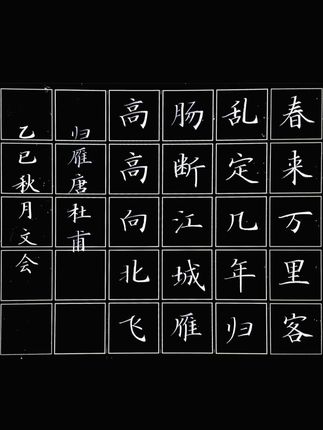 春来万里客
乱定几年归
肠断江城雁
高高向北飞
归雁唐杜甫
乙巳秋月文会